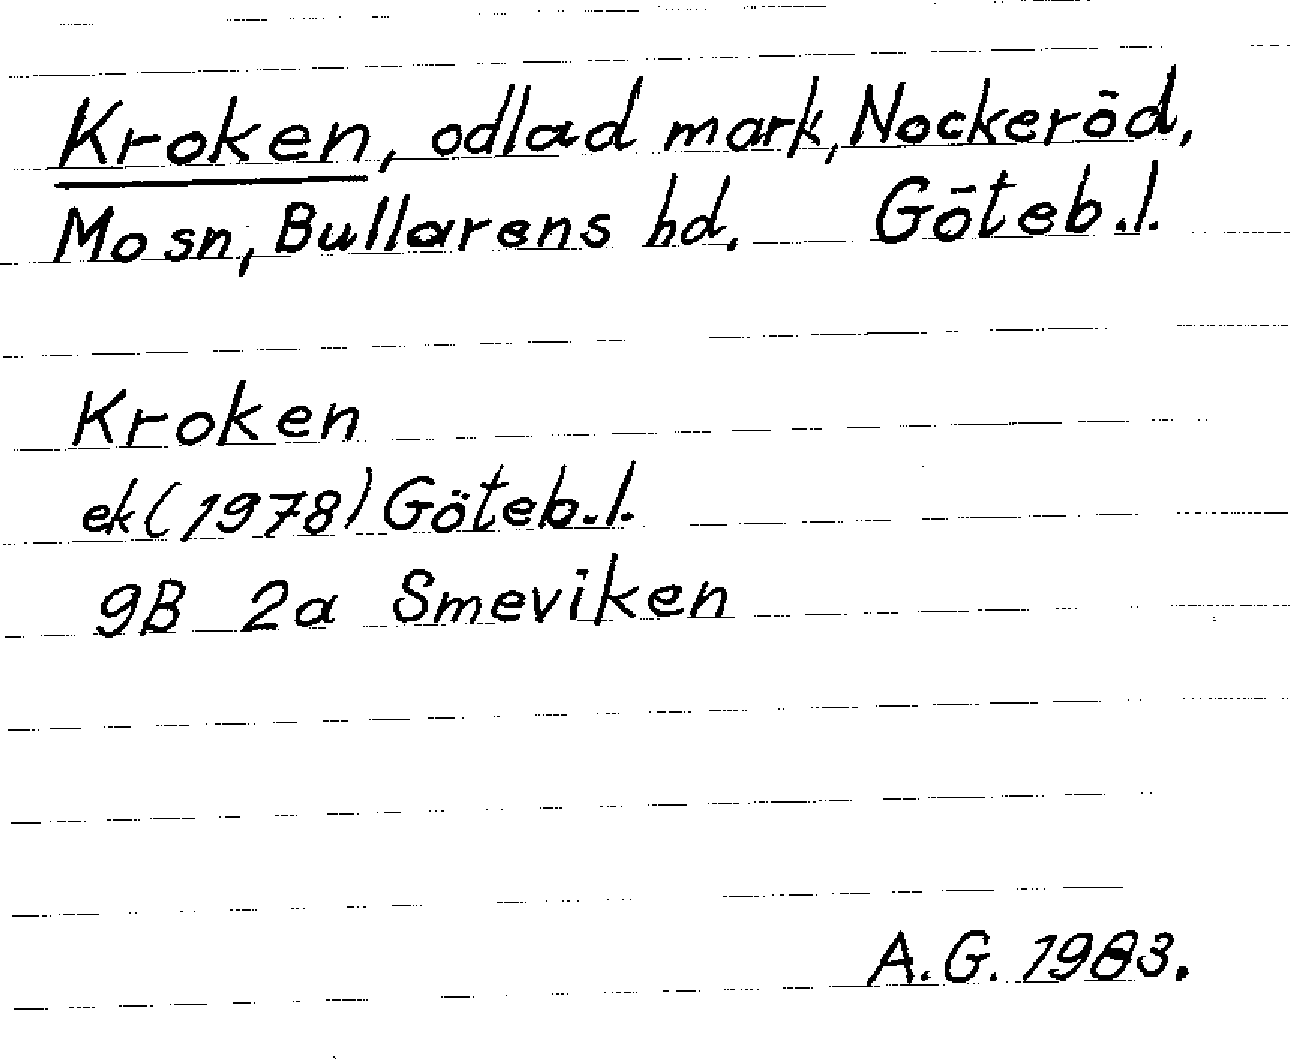 Kroken, odlad mark, Nockeröd,
Mo sn, Bullarens hd. Göteb.l.
Kroken
ek (1978) Göteb.l.
9B 2a Smeviken
A.G. 1983.